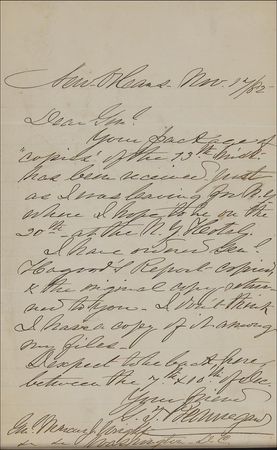 New Orleans Nov. 14/82
Dear Genl.
Your package of
"copies" of the 13th inst.
has been received just
as I was leaving for N.Y.
where I hope to be on the
20th at the N.Y. Hotel.
I have ordered Genl.
Hagood's Report copied
& the original copy
to you. I don't think
I have a copy of it among
my files.
I expect to be back here
between the 7th & 10th of Dec.
Your friend
G. T. Beauregard
Gnl. Marcus J. Wright
Washington D.C.